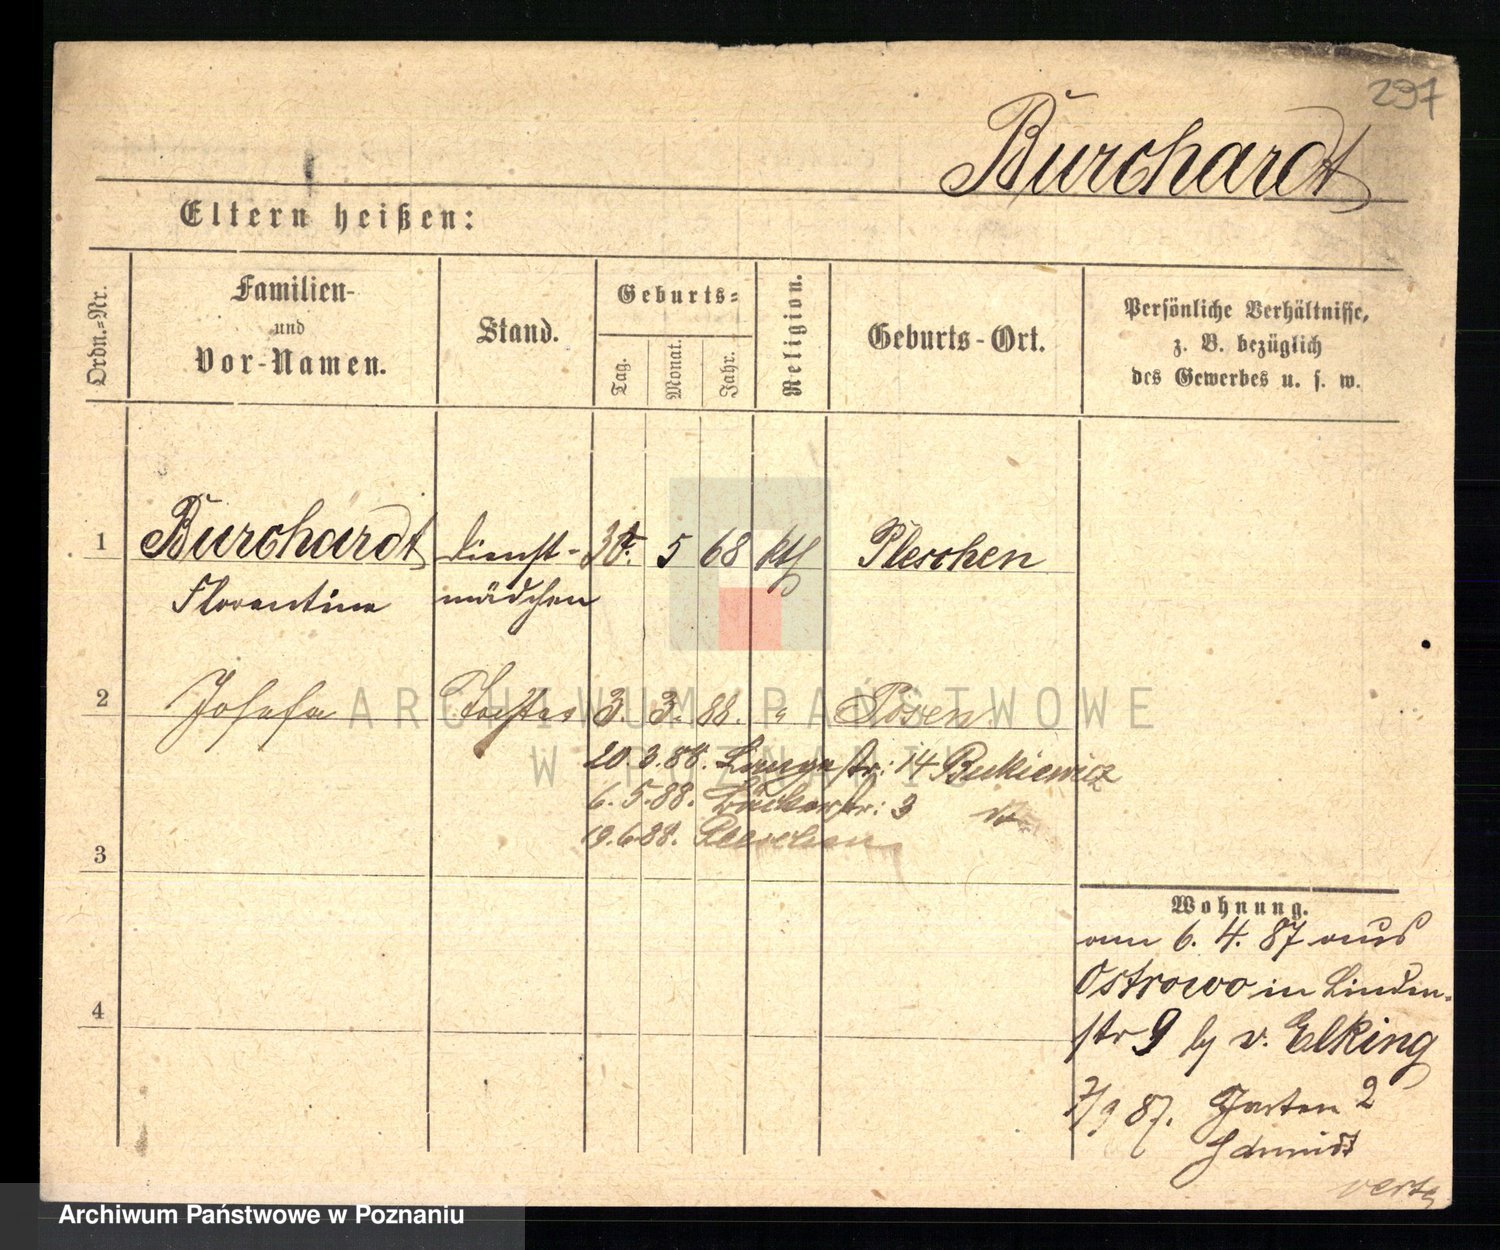 297
Burchardt
Eltern heißen:
Ordn.-Nr.
Familien-
und
Vor-Namen.
Stand.
Geburts-
Tag.
Monat.
Jahr.
Religion.
Geburts-Ort.
Persönliche Verhältnisse,
z. B. bezüglich
des Gewerbes u. s. w.
1 Burchardt Dienst- 5 68 kth Pleschen
Florentine mädchen
2 Josefa Tochter 3. 3. 88. " Posen
ARCHIWUM PAŃSTWOWE
W POZNANIU
20.3.88. Langestr: 14 Bukiewicz
6.5.88. Bäckerstr: 3
19.6.88. Pleschen
3
4
Wohnung.
am 6. 4. 87 aus
Ostrowo in Linden-
str 9 bj v. Elking
7/9 87. Garten 2
Schmidt
verte
Archiwum Państwowe w Poznaniu